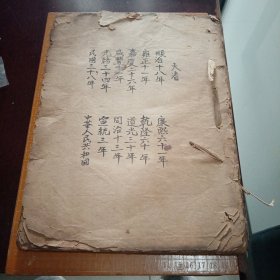 大清
順治十八年
康熙六十一年
雍正十一年
乾隆六十年
嘉慶二十六年
道光三十年
咸豐十一年
同治十三年
光緒三十四年
宣統三年
民國三十八年
中華人民共和國